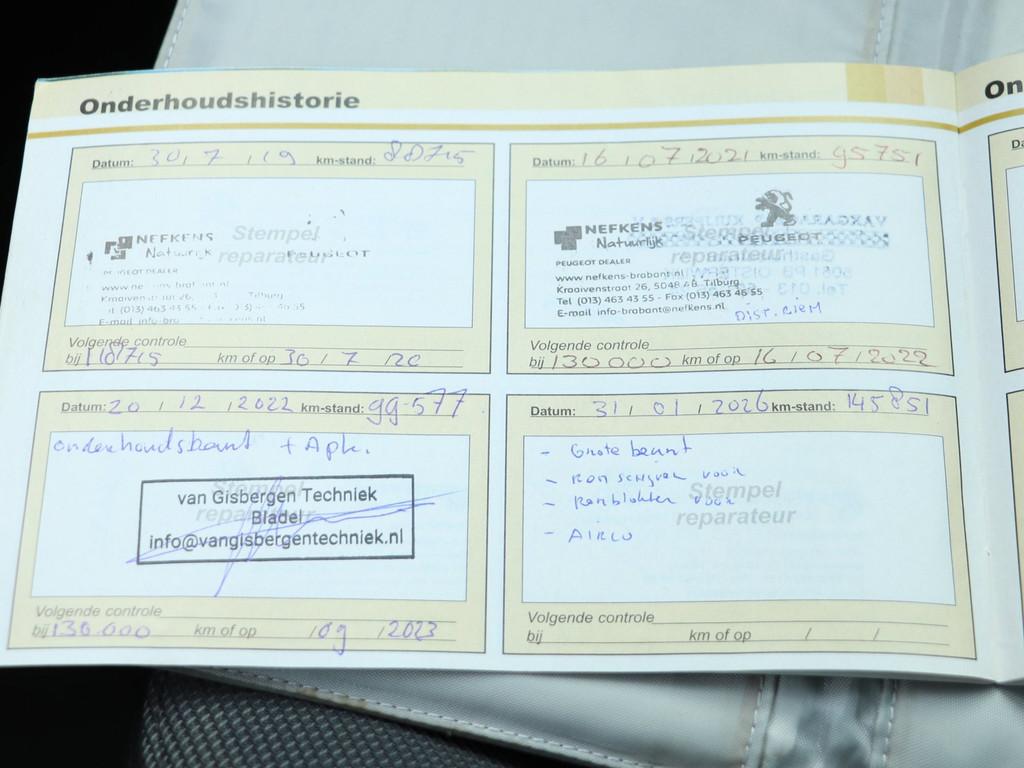 Onderhoudshistorie
On
Datum: 30 / 7 / 19 km-stand: 88715
NEFKENS
Natuurlijk PEUGEOT
Stempel
reparateur
PEUGEOT DEALER
Kraaivenstraat 26, Tilburg
(013) 463 43 55
E-mail info-bra
Volgende controle
bij 110715 km of op 30 / 7 / 20
Datum: 16 / 07 / 2021 km-stand: 95751
NEFKENS
Natuurlijk PEUGEOT
Stempel
reparateur
PEUGEOT DEALER
www.nefkens-brabant.nl
Kraaivenstraat 26, 5048 AB Tilburg
Tel (013) 463 43 55 - Fax (013) 463 46 55
E-mail info-brabant@nefkens.nl
DIST. RIEM
Volgende controle
bij 130000 km of op 16 / 07 / 2022
Datum: 20 / 12 / 2022 km-stand: 99-577
onderhoudsbeurt + Apk.
Stempel
reparateur
van Gisbergen Techniek
Bladel
info@vangisbergentechniek.nl
Volgende controle
bij 130.000 km of op / 09 / 2023
Datum: 31 / 01 / 2026 km-stand: 145851
- Grote beurt
- Remschijven voor
- Remblokken voor
- AIRCO
Stempel
reparateur
Volgende controle
bij km of op / /